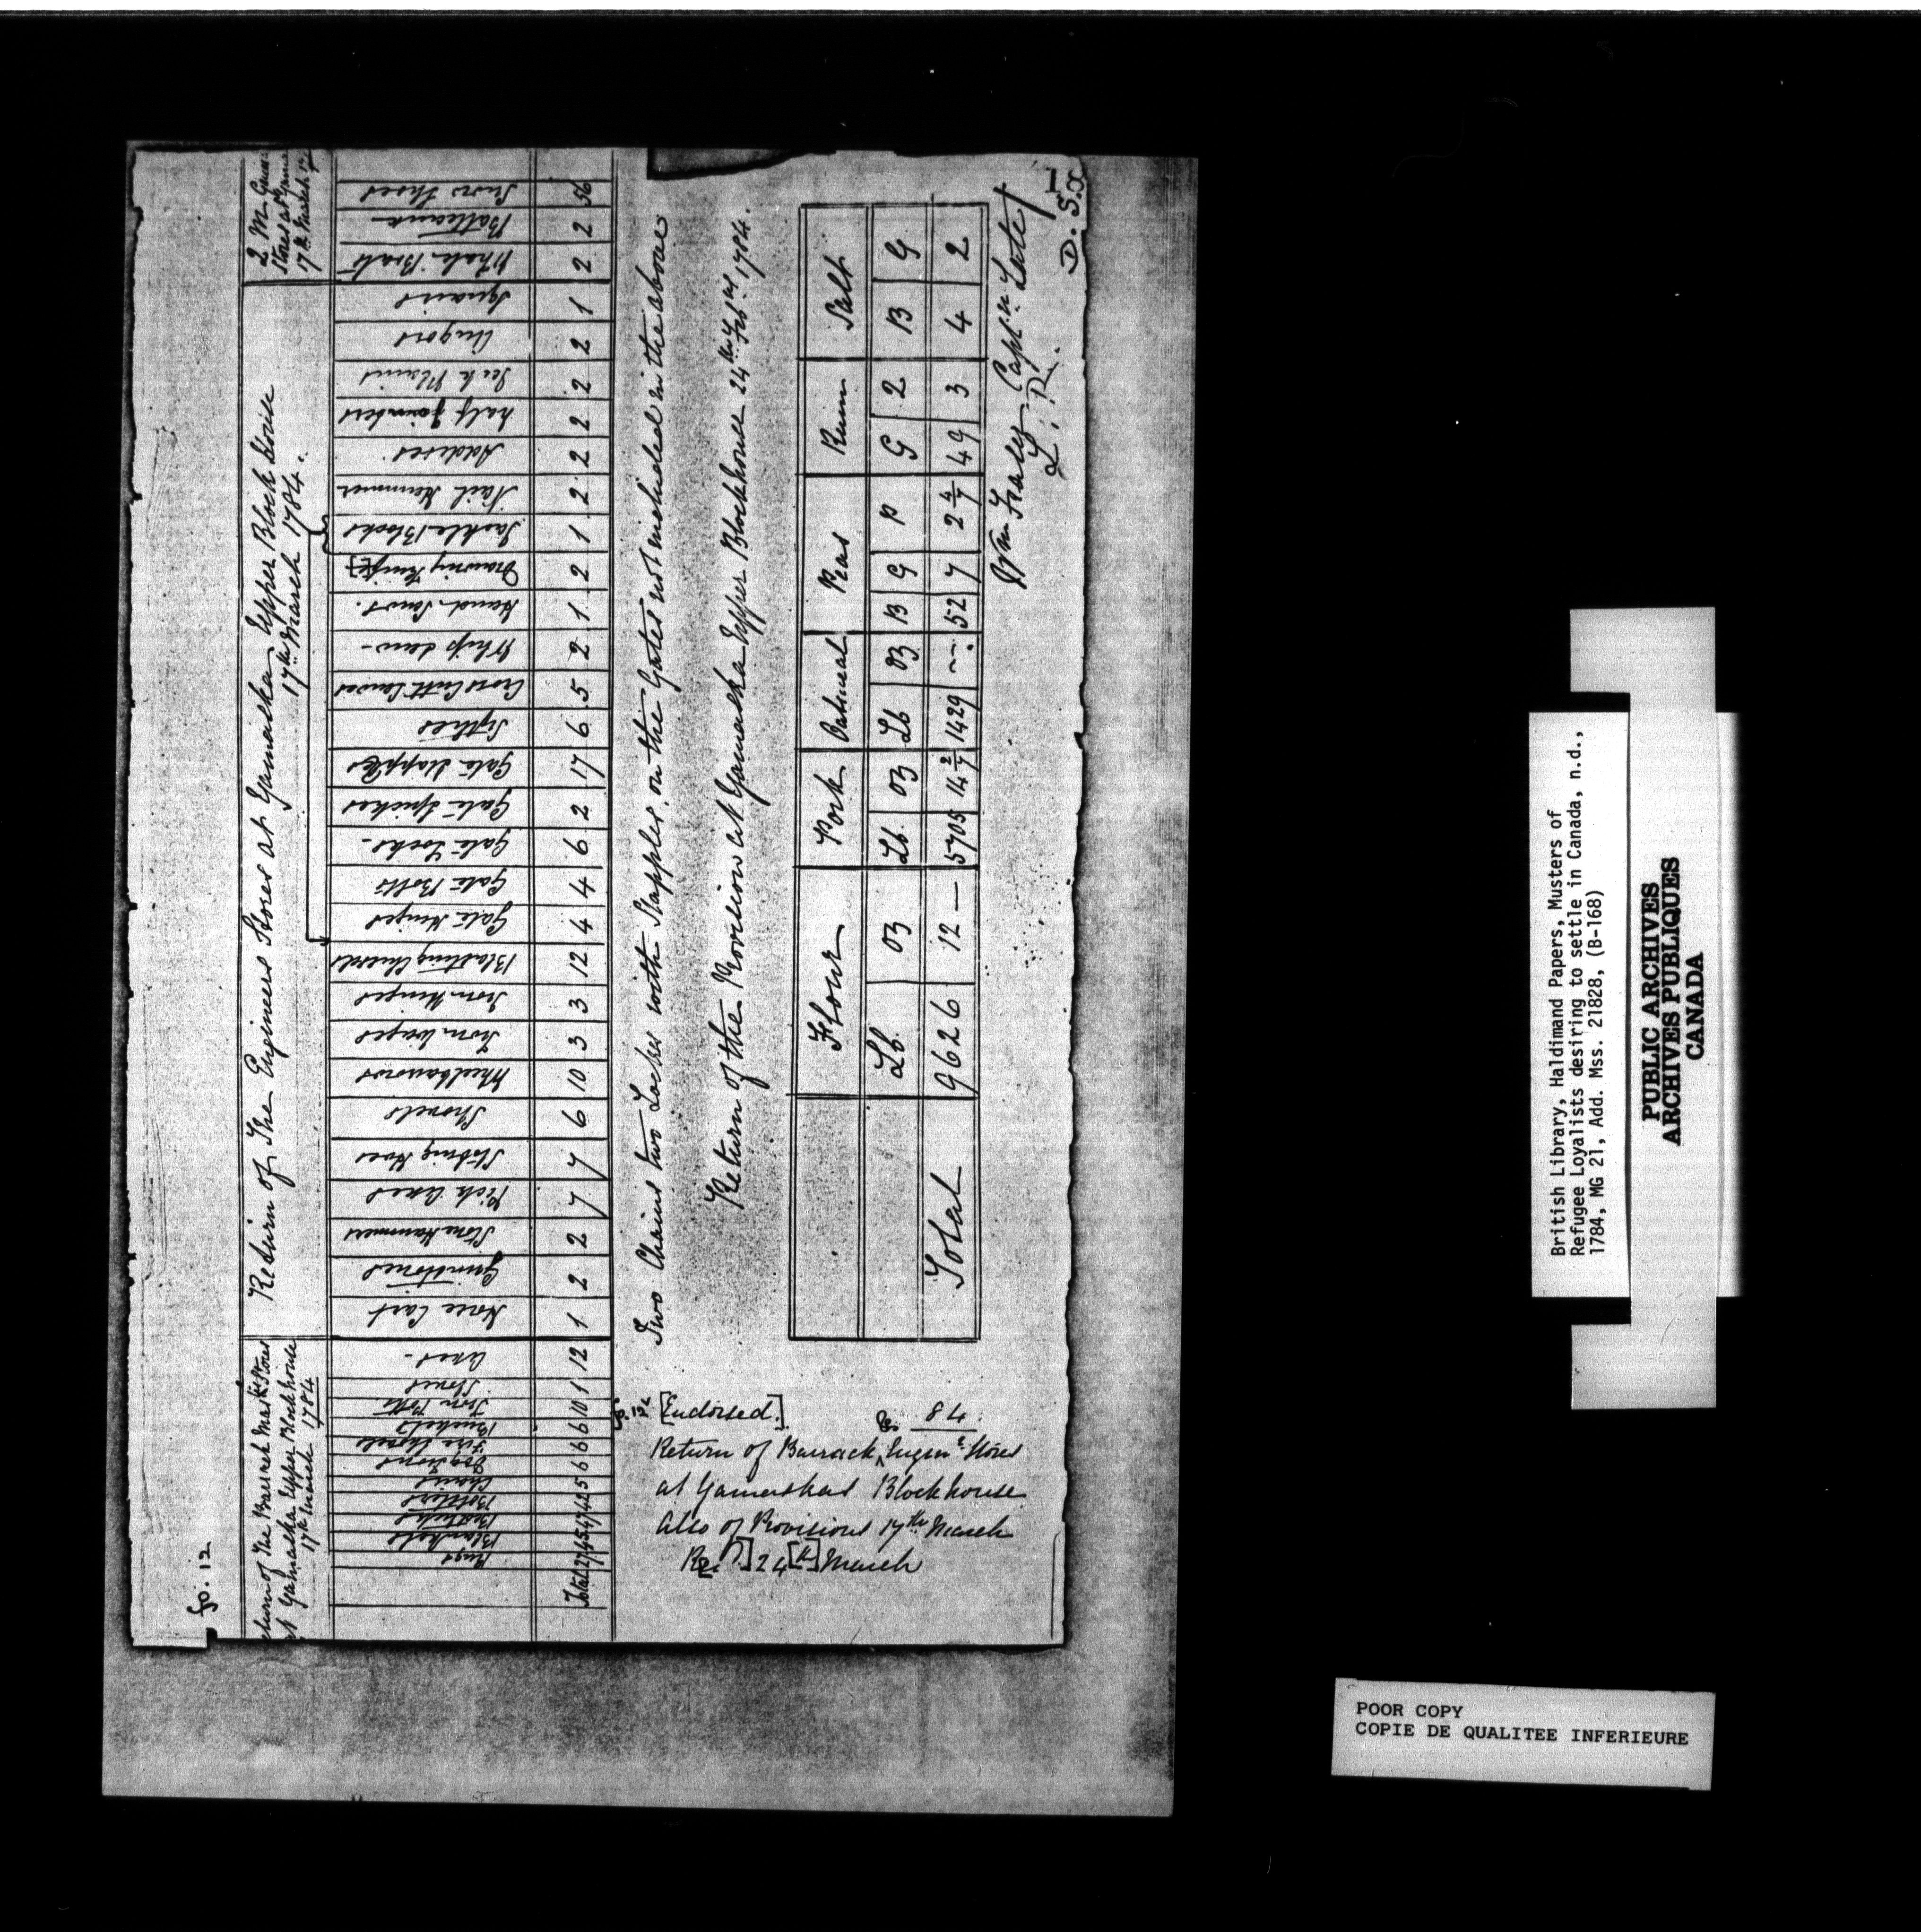 fo. 12
Return of The Barrack Mastrs Stores
at Yamaska Upper Blockhouse
17th March 1784
Return of The Engineers Stores at Yamaska Upper Block house
17th March 1784.
2 M Genl
Stores at Yama
17th March 17
Rugs
Blankets
Bedticks
Bolsters
Chains
Dog Irons
Fire Shovels
Buckets
Iron Potts
Stoves
Axes -
Horse Cart
Grinstones
Stone Hammers
Pick axes
Stobing Hoes
Shovels
Wheelbarrows
Iron Wages
Iron Hinges
Blasting Chissels
Gate Hinges
Gate Bolts
Gate Locks -
Gate Spickes
Gate Stapples
Sythes
Cross Cutt Sawes
Whip Saw -
Hand Saws.
Drawing Knife[s]
Tackle Blocks
Nail Hammer
Addeses.
half Jointers
Jack Plains
Augors
Squairs
Whale Boats
Batteaux -
Snow Shoes
Total 27 45 47 42 5 6 6 6 10 1 12 1 2 2 7 7 6 10 3 3 12 4 4 6 2 17 6 5 2 1 2 1 2 2 2 2 2 1 2 2 56
Two Chains two Lockes with Stapples on the Gates not included in the above
Return of the Provision at Yamaska Upper Blockhouse 24th Febry 1784.
Flour Pork Oatmeal Peas Rum Salt
Lb. oz Lb. oz Lb oz B G P G 2 B G
Total 9626 12 — 5705 14 2/7 1429 ~. 52 7 2 4/7 49 3 4 2
Wm Fraser Captn Late
L: R.
18
D. S.
fo. 12b [Endorsed.] 84
Return of Barrack & Enginrs Stores
at Yamaskas Blockhouse
Also of Provisions 17th March
Re[d] 24[th] March
British Library, Haldimand Papers, Musters of
Refugee Loyalists desiring to settle in Canada, n.d.,
1784, MG 21, Add. Mss. 21828, (B-168)
PUBLIC ARCHIVES
ARCHIVES PUBLIQUES
CANADA
POOR COPY
COPIE DE QUALITEE INFERIEURE